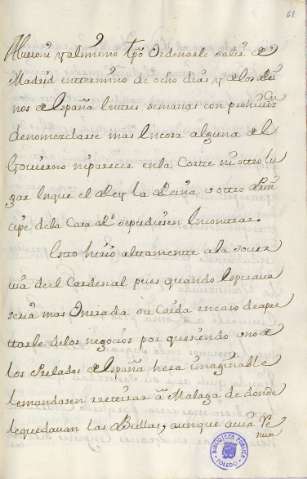 61
y al mismo tpõ Ordenarle salir de
Madrid en termino de ocho dias y de los Rei
nos de España en tres semanas con prohiuiⁿ
de mezclarse mas en cosa alguna del
Gouierno ni parecer en la Corte ni otro lu
gar en que el Rey la Reina, o otro Prin
cipe de la Casa Rˡ se pudiesen encontrar.
Esto hirio altamente a la
del Cardenal pues quando esperaua
seria mas su Caida en caso de apar
tarle de los negocios por que siendo uno de
los Prelados de España hera inimaginable
le mandasen retirar á Malaga de donde
le quedauan las Bullas, aunque auia Re
nun
BIBLIOTECA PUBLICA
TOLEDO